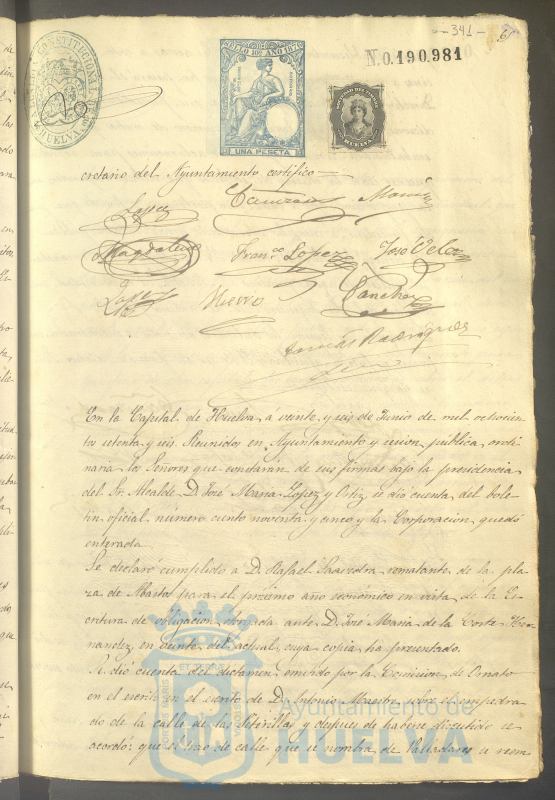 - 341 -
6
N.0.190.981
SELLO 10º AÑO 1876
UNA PESETA
HUELVA
CONSTITUCIONAL
HUELVA
cretario del Ayuntamiento certifico
Lopez
Magdaleno Franco Lopez José Vela
Lopez Hierro Sanchez
Tomás Rodriguez
En la Capital de Huelva á veinte y seis de Junio de mil ochocien
to setenta y seis Reunidos en Ayuntamiento y sesion pública ordi
naria los Señores que constaran de sus firmas bajo la presidencia
del Sr. Alcalde D. José Maria Lopez y Ortiz se dió cuenta del bole
tin oficial número ciento noventa y cinco y la Corporacion quedó
enterada.
Se declaró cumplido á D. Rafael Saavedra rematante de la pla
za de Abastos para el próximo año económico en vista de la Es
critura de obligacion otorgada ante D. José Maria de la Corte Her
nandez en veinte del actual, cuya copia ha presentado.
Se dió cuenta del dictamen emitido por la Comision de Ornato
en el escrito en el de D. Antonio sobre empedra
do de la calle de las y despues de haberse discutido se
acordó: que el de calle que se nombra de Valladares se
Ayuntamiento de
HUELVA